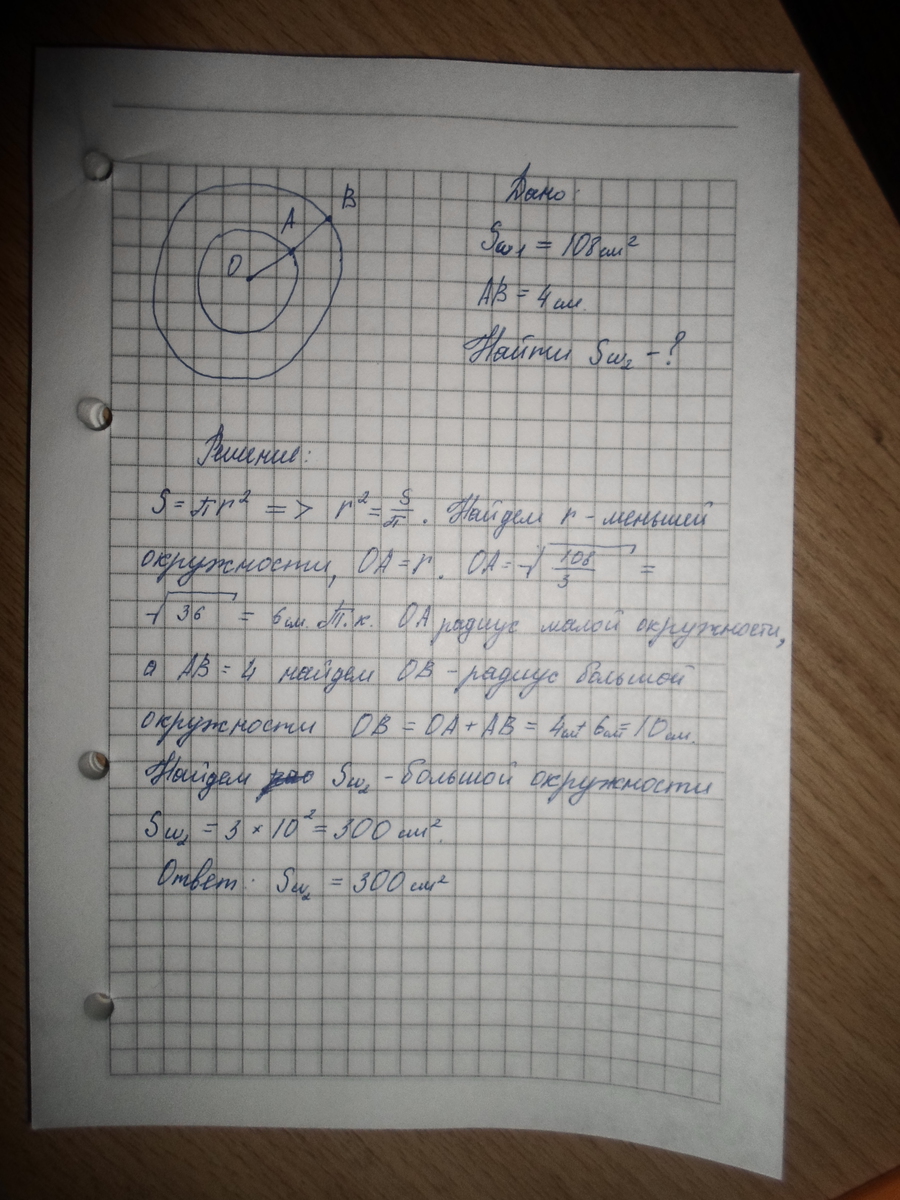 B
A
O
Дано:
Sω₁ = 108 см²
AB = 4 см.
Найти Sω₂ - ?
Решение:
S = πr² => r² = S/π. Найдем r - меньшей
окружности, OA = r. OA = √(108/3) =
√36 = 6 см. Т.к. OA радиус малой окружности,
а AB = 4 найдем OB - радиус большой
окружности OB = OA + AB = 4 см + 6 см = 10 см.
Найдем Sω₂ - большой окружности
Sω₂ = 3 × 10² = 300 см².
Ответ: Sω₂ = 300 см²